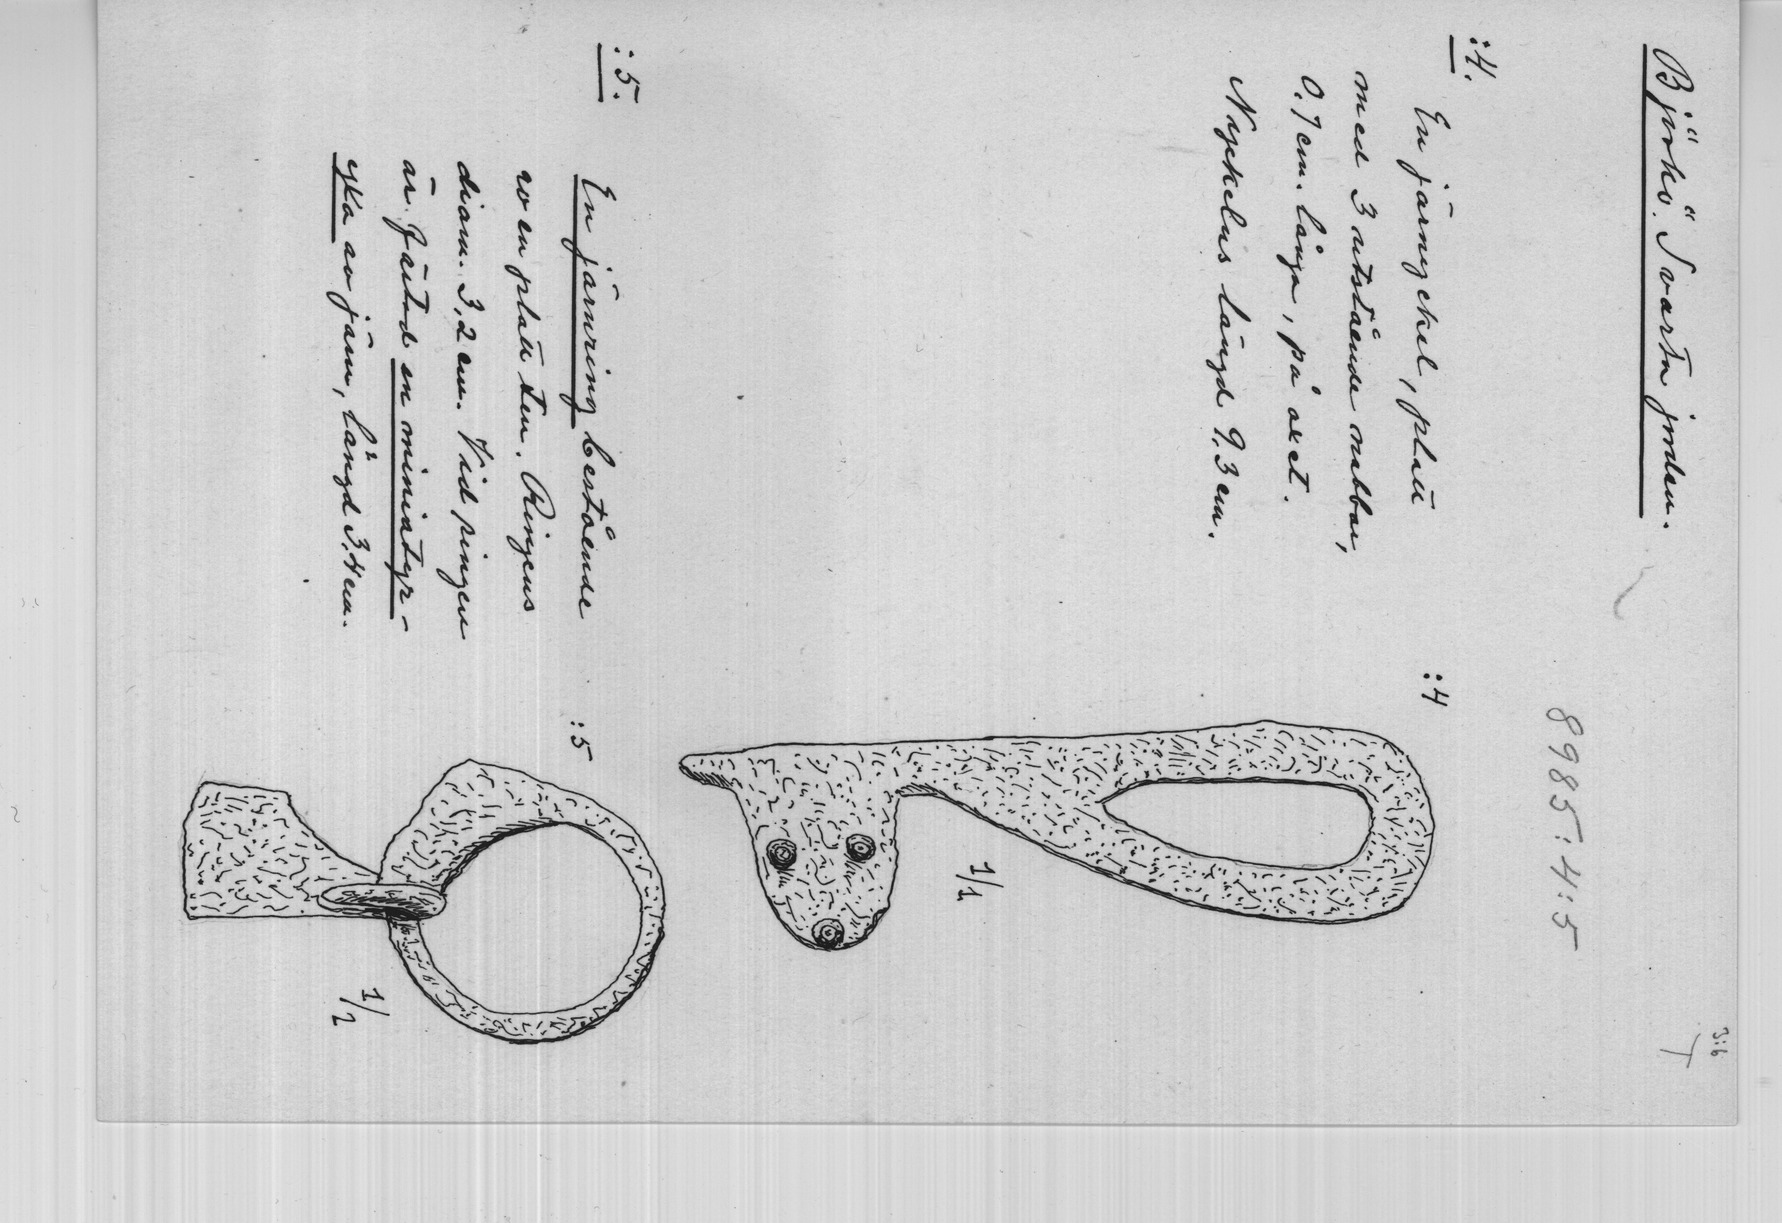 Björkö. Svarta jorden.
3:6
T
8985:4:5
:4. En järnyckel, platt
med 3 utstående nabbar,
0.7 cm. långa, på axet.
Nyckelns längd 9,3 cm.
:4
1/1
:5. En järnring bestående
av en platt ten. Ringens
diam. 3,2 cm. Vid ringen
är fästad en miniatyr-
yxa av järn, längd 3,4 cm.
:5
1/1